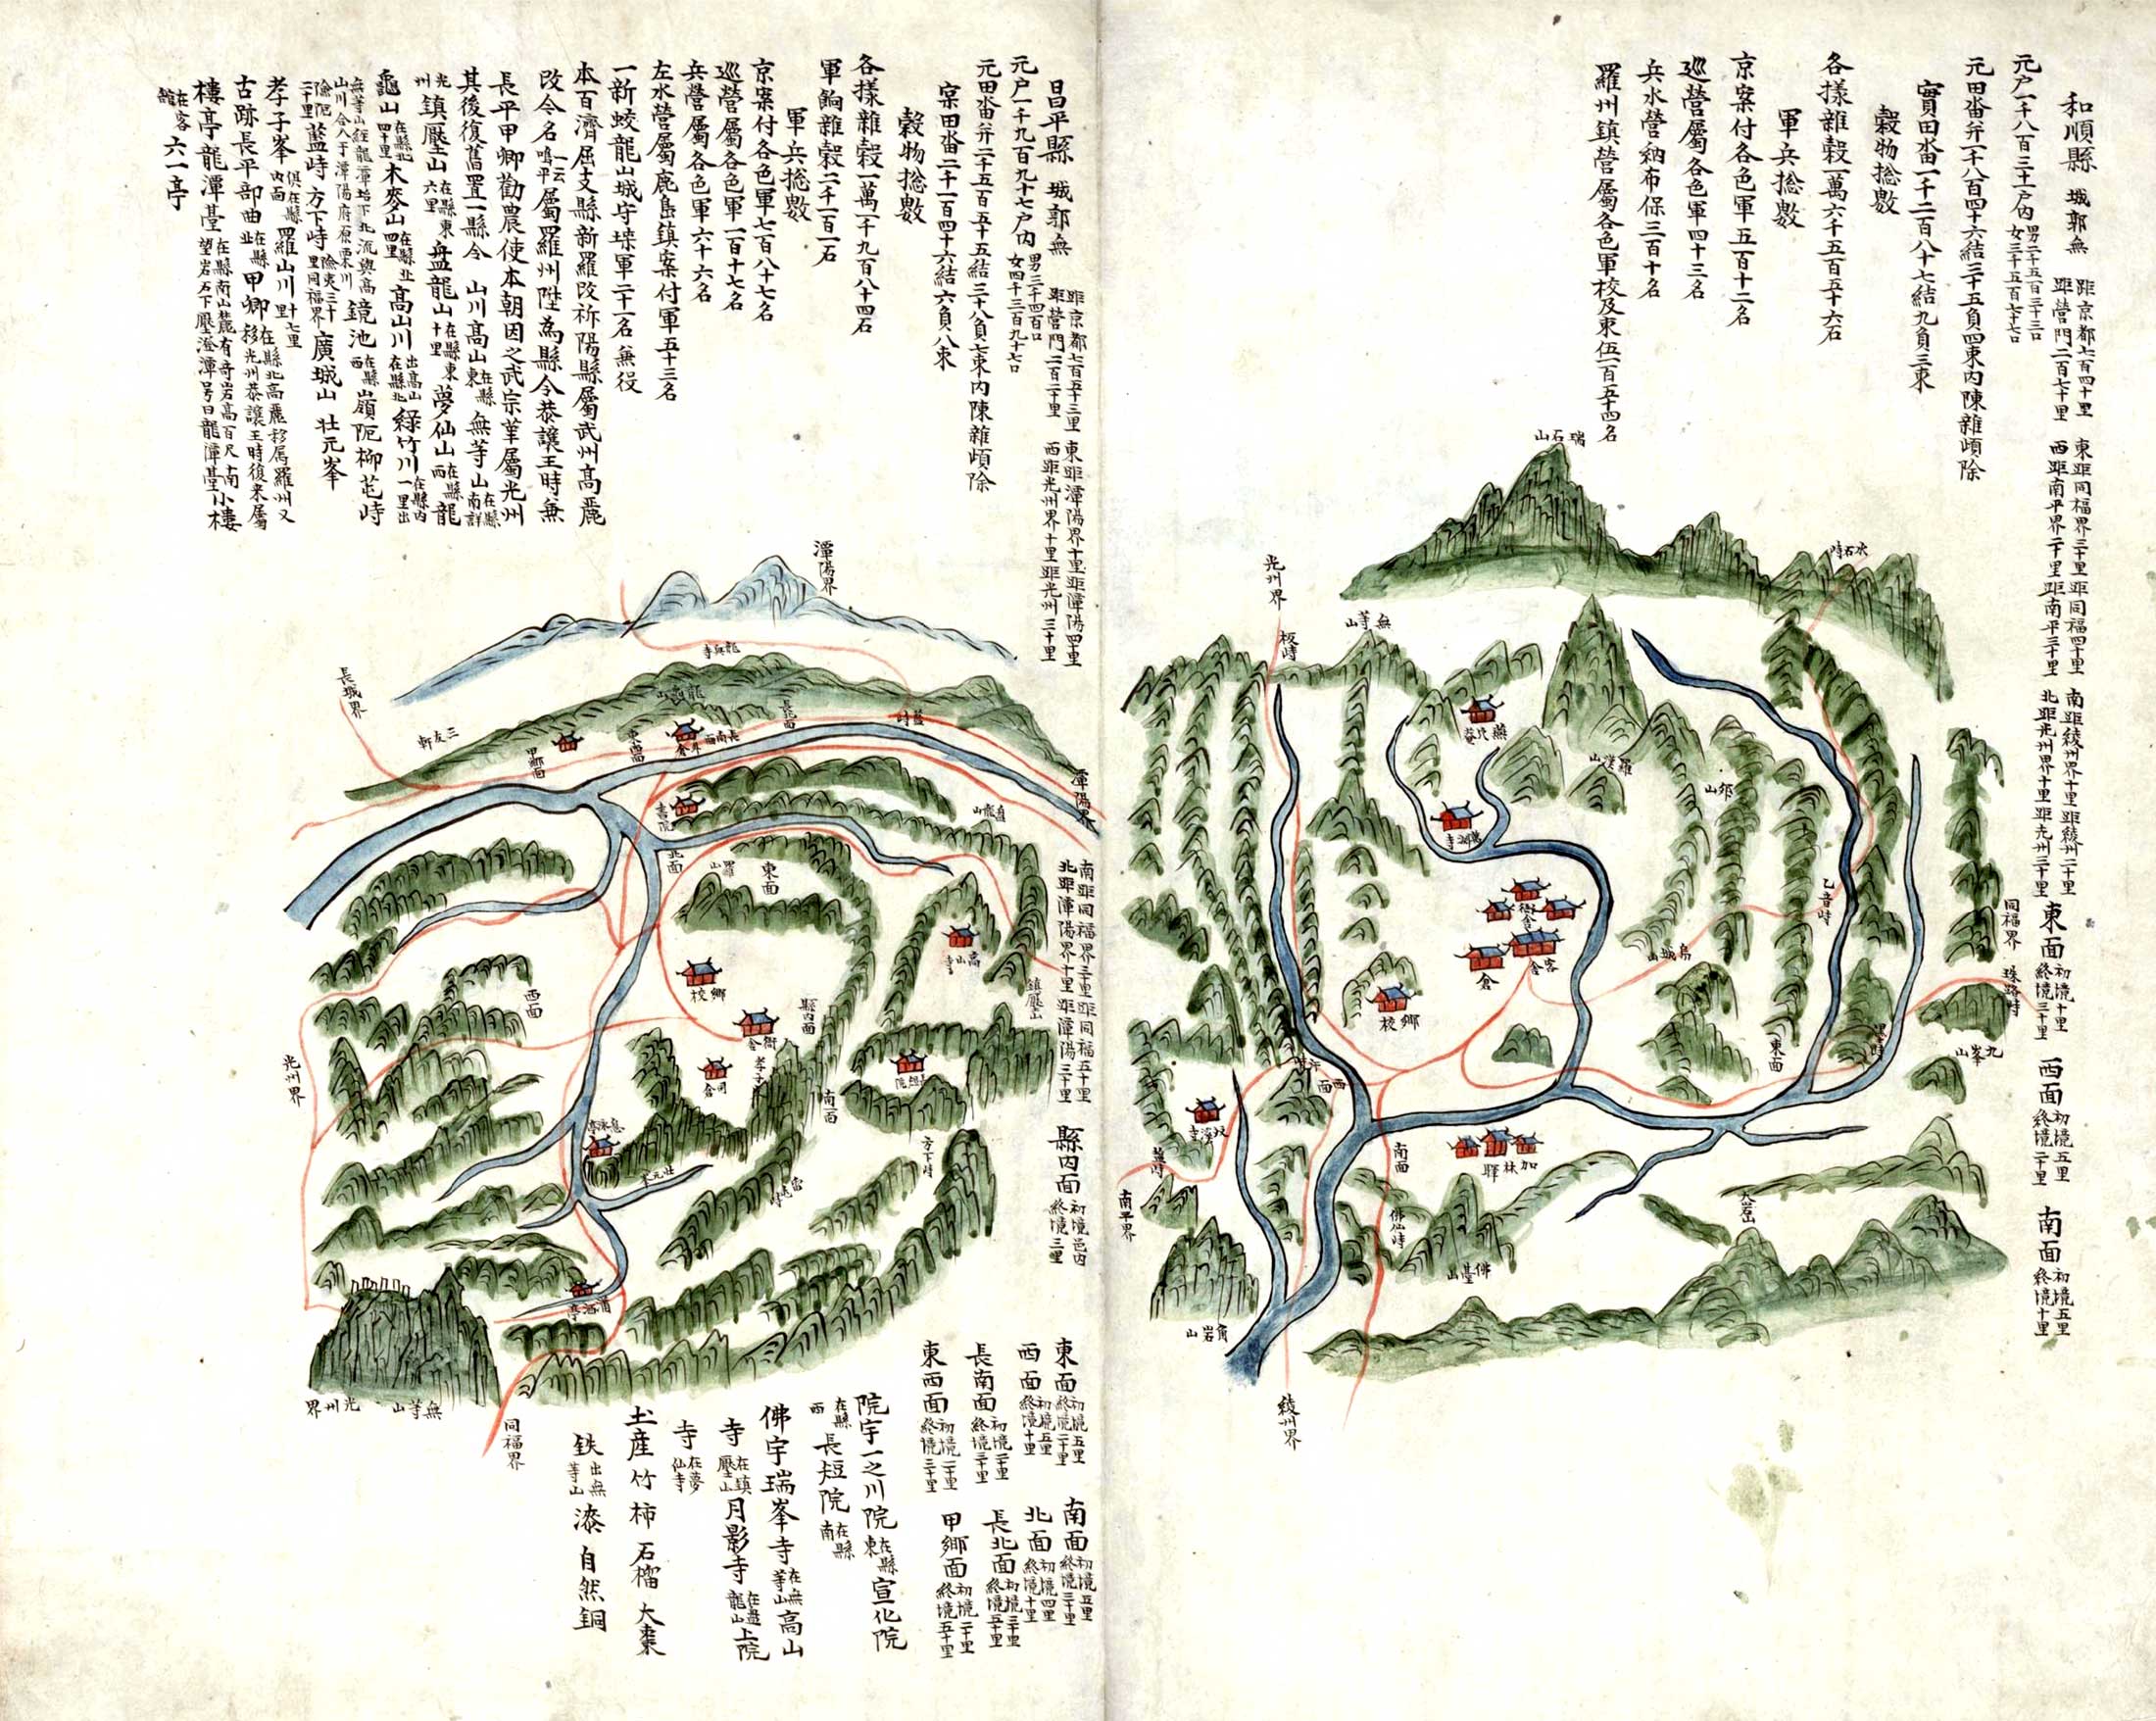 和順縣 城郭無 距京都七百四十里 距營門二百七十里 東距同福界三十里距同福四十里 西距南平界二十里距南平三十里 南距綾州界十里距綾州二十里 北距光州界十里距光州三十里 東面 初境十里 終境三十里 西面 初境五里 終境二十里 南面 初境五里 終境十里
元戶一千八百三十一戶內 男二千五百三十三口 女三千五百七十七口
元田畓幷二千八百四十六結三十五負四束內陳雜頉除
實田畓一千二百八十七結九負三束
穀物摠數
各樣雜穀一萬六千五百五十六石
軍兵摠數
京案付各色軍五百十二名
巡營屬各色軍四十三名
兵水營納布保三百十名
羅州鎮營屬各色軍校及東伍一百五十四名
瑞石山
光州界
板峙
無等山
羅漢山
萬淵寺
衙舍
客舍
倉
鄉校
烏城山
同福界
九峯山
東面
西面
南面
加林驛
佛仙峙
佛臺山
大岩
南平界
角岩山
綾州界
昌平縣 城郭無 距京都七百五十三里 距營門二百二十里 東距潭陽界十里距潭陽四十里 西距光州界十里距光州三十里 南距同福界三十里距同福五十里 北距潭陽界十里距潭陽三十里 縣內面 初境邑內 終境三里
元戶一千九百九十七戶內 男三千四百口 女四千三百九十七口
元田畓幷二千五百五十五結三十八負七束內陳雜頉除
實田畓二千一百四十六結六負八束
穀物摠數
各樣雜穀一萬一千九百八十四石
軍餉雜穀二千一百一石
軍兵摠數
京案付各色軍七百八十七名
巡營屬各色軍一百十七名
兵營屬各色軍六十六名
左水營屬鹿島鎮案付軍五十三名
一新蛟龍山城守堞軍二十一名無役
本百濟屈支縣新羅改祈陽縣屬武州高麗
改今名 一云鳴平 屬羅州陞爲縣令恭讓王時兼
長平甲鄉勸農使本朝因之武宗革屬光州
其後復舊置一縣令 山川高山 在縣東 無等山 在縣南詳
光州 鎮壓山 在縣東六里 盤龍山 在縣東十里 夢仙山 在縣西 龍
龜山 在縣北四十里 木麥山 在縣北四里 高山川 出高山在縣北 綠竹川 在縣內一里出
鏡池 在縣西 嶺阨柳芚峙
藍峙方下峙 險夷三十里同福界 廣城山 壯元峯
孝子峯 俱在縣內面 羅山川 十七里
古跡長平部曲 在縣北 甲鄉 在縣北高麗移屬羅州又移光州恭讓王時復來屬
樓亭龍潭臺 在縣南山麓有奇岩高百尺南望岩石下壓澄潭号曰龍潭臺 小樓
在客館 六一亭
東面 初境五里 終境二十里 南面 初境五里 終境三十里
西面 初境五里 終境十里 北面 初境四里 終境十里
長南面 初境二十里 終境三十里 長北面 初境三十里 終境五十里
東西面 初境二十里 終境三十里 甲鄉面 初境二十里 終境五十里
院宇一之川院 在縣東 宣化院
在縣西 長短院 在縣南
佛宇瑞峯寺 在無等山 高山
寺 在鎮壓山 月影寺 在盤龍山 上院
寺 在夢仙寺
土産 竹 柿 石榴 大棗
鉄 出無等山 漆 自然銅
潭陽界
長城界
三友軒
甲鄉面
東西面
長南面
潭陽界
書院
北面
東面
西面
高山寺
鄉校
衙舍
縣內面
司倉
南面
方下峙
壯元峯
光州界
無等山
光州界
同福界